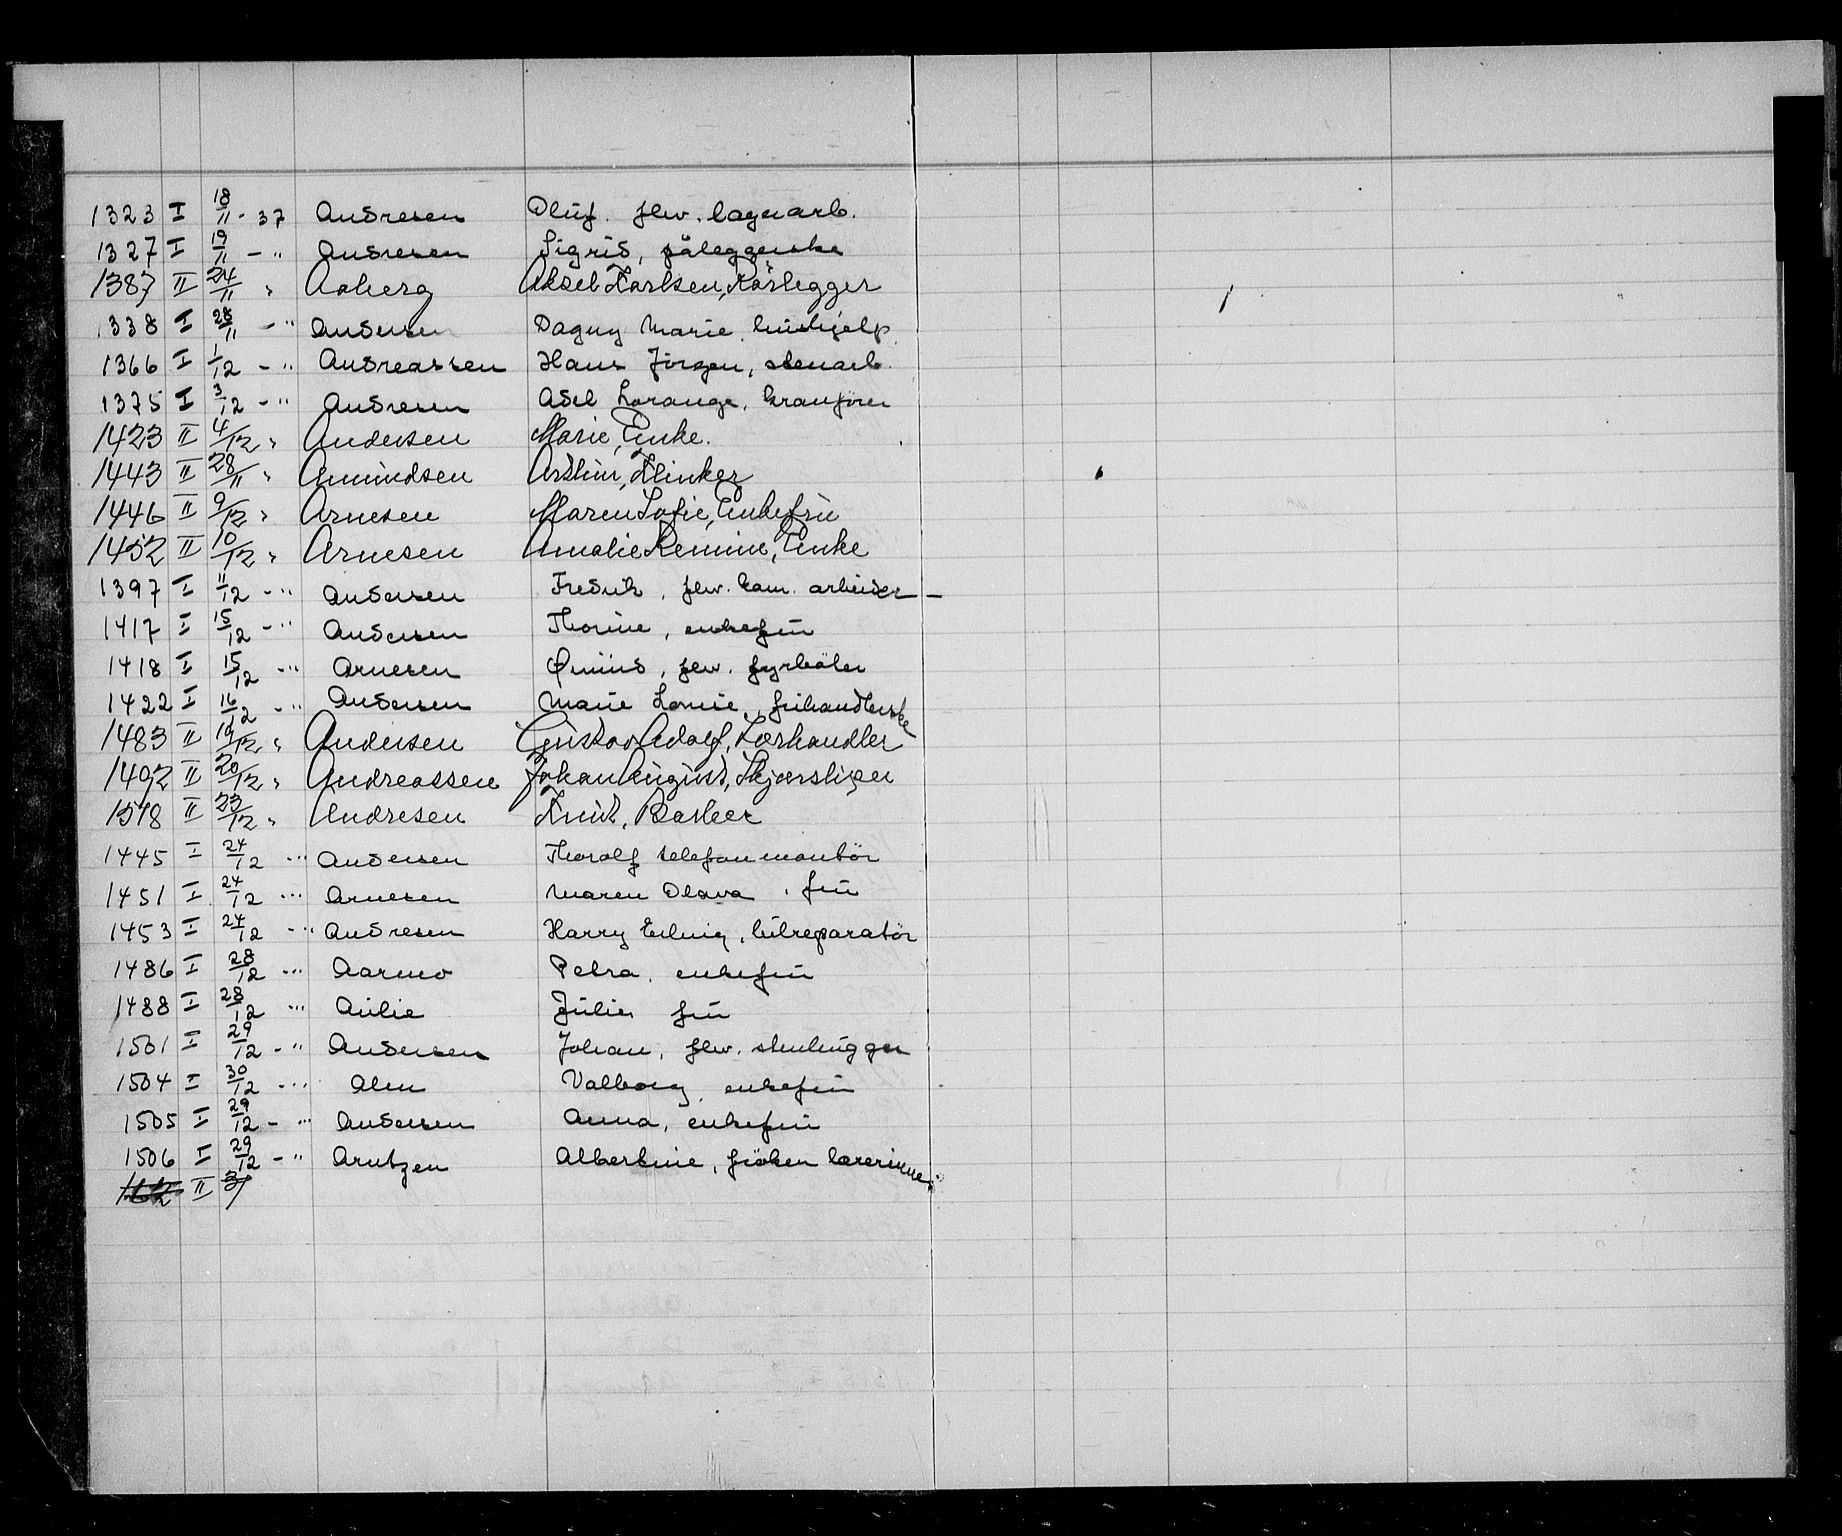 1323 I 18/11 - 37 Andresen Oluf. flv. lagerarb.
1327 I 19/11 - " Andresen Sigrid, påleggerske
1387 II 24/11 " Aaberg Aksel Karlsen, Rørlegger
1338 I 28/11 - " Andersen Dagny Marie hushjelp
1366 I 1/12 - " Andreassen Hans Jörgen, stenarb.
1375 I 3/12 - " Andresen Adel Lorange, kranfører
1423 II 4/12 " Andersen Marie, Enke.
1443 II 28/11 " Amundsen Arthur, Klinker
1446 II 9/12 " Arnesen Maren Sofie, Enkefru
1452 II 10/12 " Arnesen Amalie, Enke
1397 I 11/12 - " Andersen Fredrik, flv. kom. arbeider
1417 I 15/12 - " Andersen Thorine, enkefru
1418 I 15/12 - " Arnesen flv. fyrbøter
1422 I 16/12 - " Andersen Marie Lovise, fruhandlerske
1483 II 19/12 " Andersen Gustav Adolf, Lærhandler
1492 II 20/12 " Andreassen Johan August, Skjærsliper
1518 II 23/12 " Andresen Knut, Barber
1445 I 24/12 - " Andersen Thoralf telefonmontör
1451 I 24/12 - " Arnesen Maren Olava, fru
1453 I 24/12 - " Andresen Harry Edvin, bilreparatör
1486 I 28/12 - " Aarmo Petra, enkefru
1488 I 28/12 - " Aulie Julie, fru
1501 I 29/12 - " Andersen Johan, flv. stenhugger
1504 I 30/12 - " Alm Valborg, enkefru
1505 I 29/12 - " Andersen Anna, enkefru
1506 I 29/12 - " Arntzen Albertine, fröken lærerinne
II